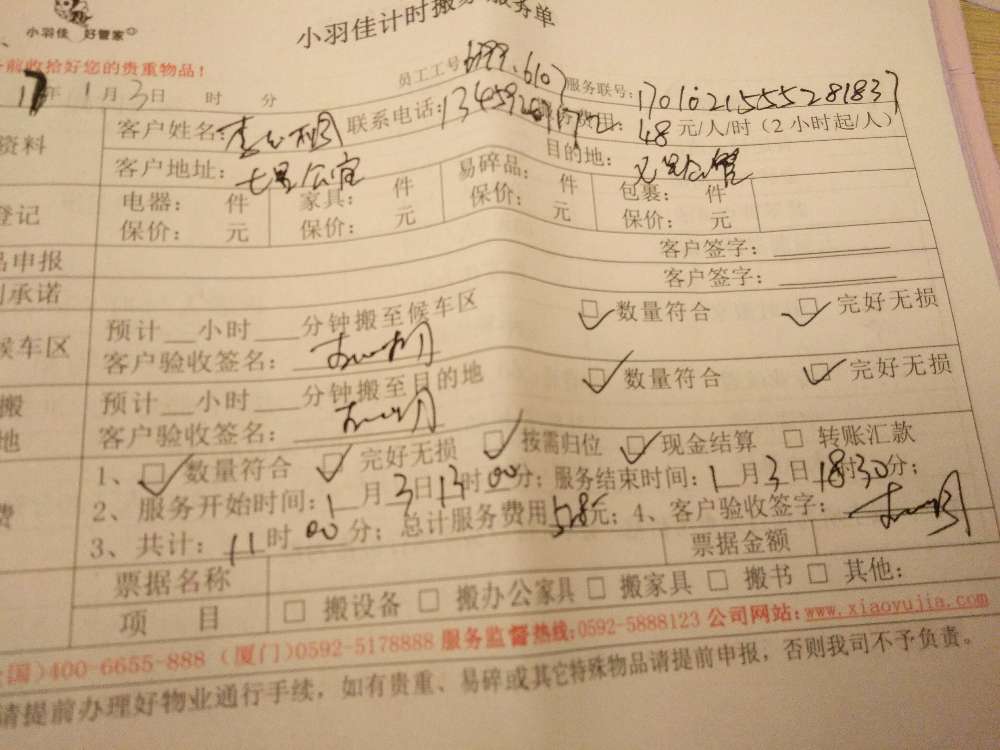 小羽佳 好管家
小羽佳计时搬家服务单
前收拾好您的贵重物品！
17年1月3日 时 分 员工工号 服务联号：
资料 客户姓名： 联系电话： 费用：48元/人/时（2小时起/人）
客户地址：七星公寓 目的地：
登记 电器： 件 家具： 件 易碎品： 件 包裹： 件
保价： 元 保价： 元 保价： 元 保价： 元
品申报 客户签字：
承诺 客户签字：
候车区 预计__小时___分钟搬至候车区 数量符合 完好无损
客户验收签名：
搬 预计__小时___分钟搬至目的地 数量符合 完好无损
地 客户验收签名：
1、数量符合 完好无损 按需归位 现金结算 转账汇款
费 2、服务开始时间：1月3日13时00分；服务结束时间：1月3日18时30分；
3、共计：11时00分；总计服务费用528元；4、客户验收签字：
票据名称 票据金额
项 目 搬设备 搬办公家具 搬家具 搬书 其他：
国）400-6655-888（厦门）0592-5178888 服务监督热线:0592-5888123 公司网站：www.xiaoyujia.com
请提前办理好物业通行手续，如有贵重、易碎或其它特殊物品请提前申报，否则我司不予负责。